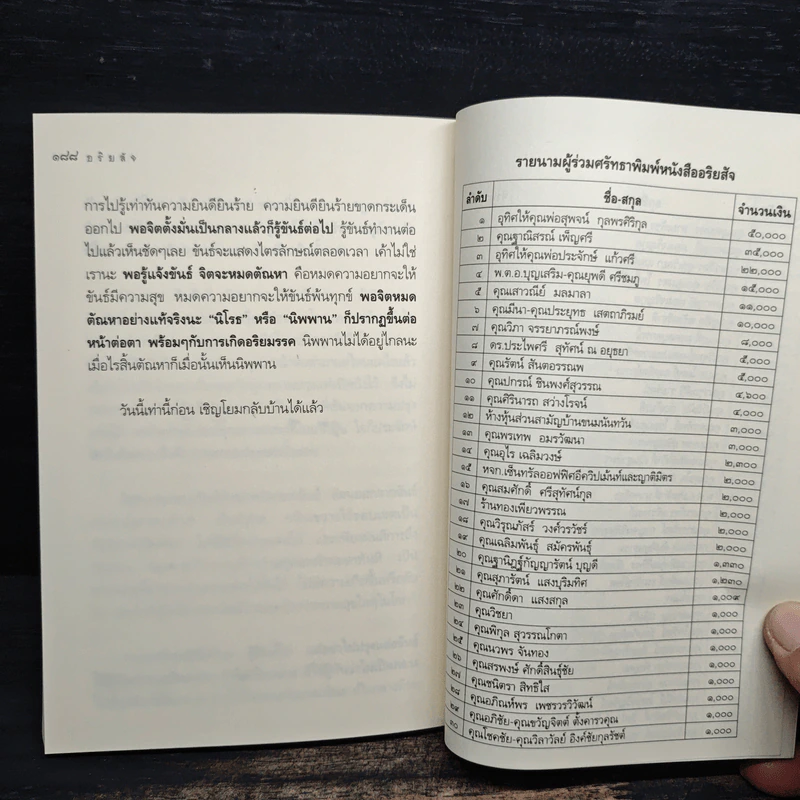 ๑๘๘ อริยสัจ
การไปรู้เท่าทันความยินดียินร้าย ความยินดียินร้ายขาดกระเด็น
ออกไป พอจิตตั้งมั่นเป็นกลางแล้วก็รู้ขันธ์ต่อไป รู้ขันธ์ทำงานต่อ
ไปแล้วเห็นชัดๆเลย ขันธ์จะแสดงไตรลักษณ์ตลอดเวลา เค้าไม่ใช่
เรานะ พอรู้แจ้งขันธ์ จิตจะหมดตัณหา คือหมดความอยากจะให้
ขันธ์มีความสุข หมดความอยากจะให้ขันธ์พ้นทุกข์ พอจิตหมด
ตัณหาอย่างแท้จริงนะ “นิโรธ” หรือ “นิพพาน” ก็ปรากฏขึ้นต่อ
หน้าต่อตา พร้อมๆกับการเกิดอริยมรรค นิพพานไม่ได้อยู่ไกลนะ
เมื่อไรสิ้นตัณหาก็เมื่อนั้นเห็นนิพพาน
วันนี้เท่านี้ก่อน เชิญโยมกลับบ้านได้แล้ว
รายนามผู้ร่วมศรัทธาพิมพ์หนังสืออริยสัจ
ลำดับ ชื่อ-สกุล จำนวนเงิน
๑ อุทิศให้คุณพ่อสุพจน์ กุลพรศิริกุล ๕๐,๐๐๐
๒ คุณฐาณิสรณ์ เพ็ญศรี ๓๕,๐๐๐
๓ อุทิศให้คุณพ่อประจักษ์ แก้วศรี ๒๒,๐๐๐
๔ พ.ต.อ.บุญเสริม-คุณยุพดี ศรีชมภู ๑๕,๐๐๐
๕ คุณเสาวณีย์ มลมาลา ๑๑,๐๐๐
๖ คุณมีนา-คุณประยุทธ เสตถาภิรมย์ ๑๐,๐๐๐
๗ คุณวิภา จรรยาภรณ์พงษ์ ๘,๐๐๐
๘ ดร.ประไพศรี สุทัศน์ ณ อยุธยา ๕,๐๐๐
๙ คุณรัตน์ สันตอรรณพ ๕,๐๐๐
๑๐ คุณปกรณ์ ชินพงศ์สุวรรณ ๔,๖๐๐
๑๑ คุณศิรินารถ สว่างโรจน์ ๔,๐๐๐
๑๒ ห้างหุ้นส่วนสามัญบ้านขนมนันทวัน ๓,๐๐๐
๑๓ คุณพรเทพ อมรวัฒนา ๓,๐๐๐
๑๔ คุณอุไร เฉลิมวงษ์ ๒,๓๐๐
๑๕ หจก.เซ็นทรัลออฟฟิศอีควิปเม้นท์และญาติมิตร ๒,๐๐๐
๑๖ คุณสมศักดิ์ ศรีสุทัศน์กุล ๒,๐๐๐
๑๗ ร้านทองเพียวพรรณ ๒,๐๐๐
๑๘ คุณวิรุณภัสร์ วงศ์วรวัชร์ ๒,๐๐๐
๑๙ คุณเฉลิมพันธุ์ สมัครพันธุ์ ๒,๐๐๐
๒๐ คุณฐานิฏฐ์กัญญารัตน์ บุญดี ๑,๓๓๐
๒๑ คุณสุภารัตน์ แสงบุริมทิศ ๑,๒๓๐
๒๒ คุณศักดิ์ดา แสงสกุล ๑,๐๐๙
๒๓ คุณวิชยา ๑,๐๐๐
๒๔ คุณพิกุล สุวรรณโกตา ๑,๐๐๐
๒๕ คุณนวพร จันทอง ๑,๐๐๐
๒๖ คุณสรพงษ์ ศักดิ์สินธุ์ชัย ๑,๐๐๐
๒๗ คุณชนิตรา สิทธิใส ๑,๐๐๐
๒๘ คุณอภิณห์พร เพชรวรวิวัฒน์ ๑,๐๐๐
๒๙ คุณอภิชัย-คุณขวัญจิตต์ ตั้งคารวคุณ ๑,๐๐๐
๓๐ คุณโชคชัย-คุณวิลาวัลย์ อิงค์ชัยกุลรัชต์ ๑,๐๐๐